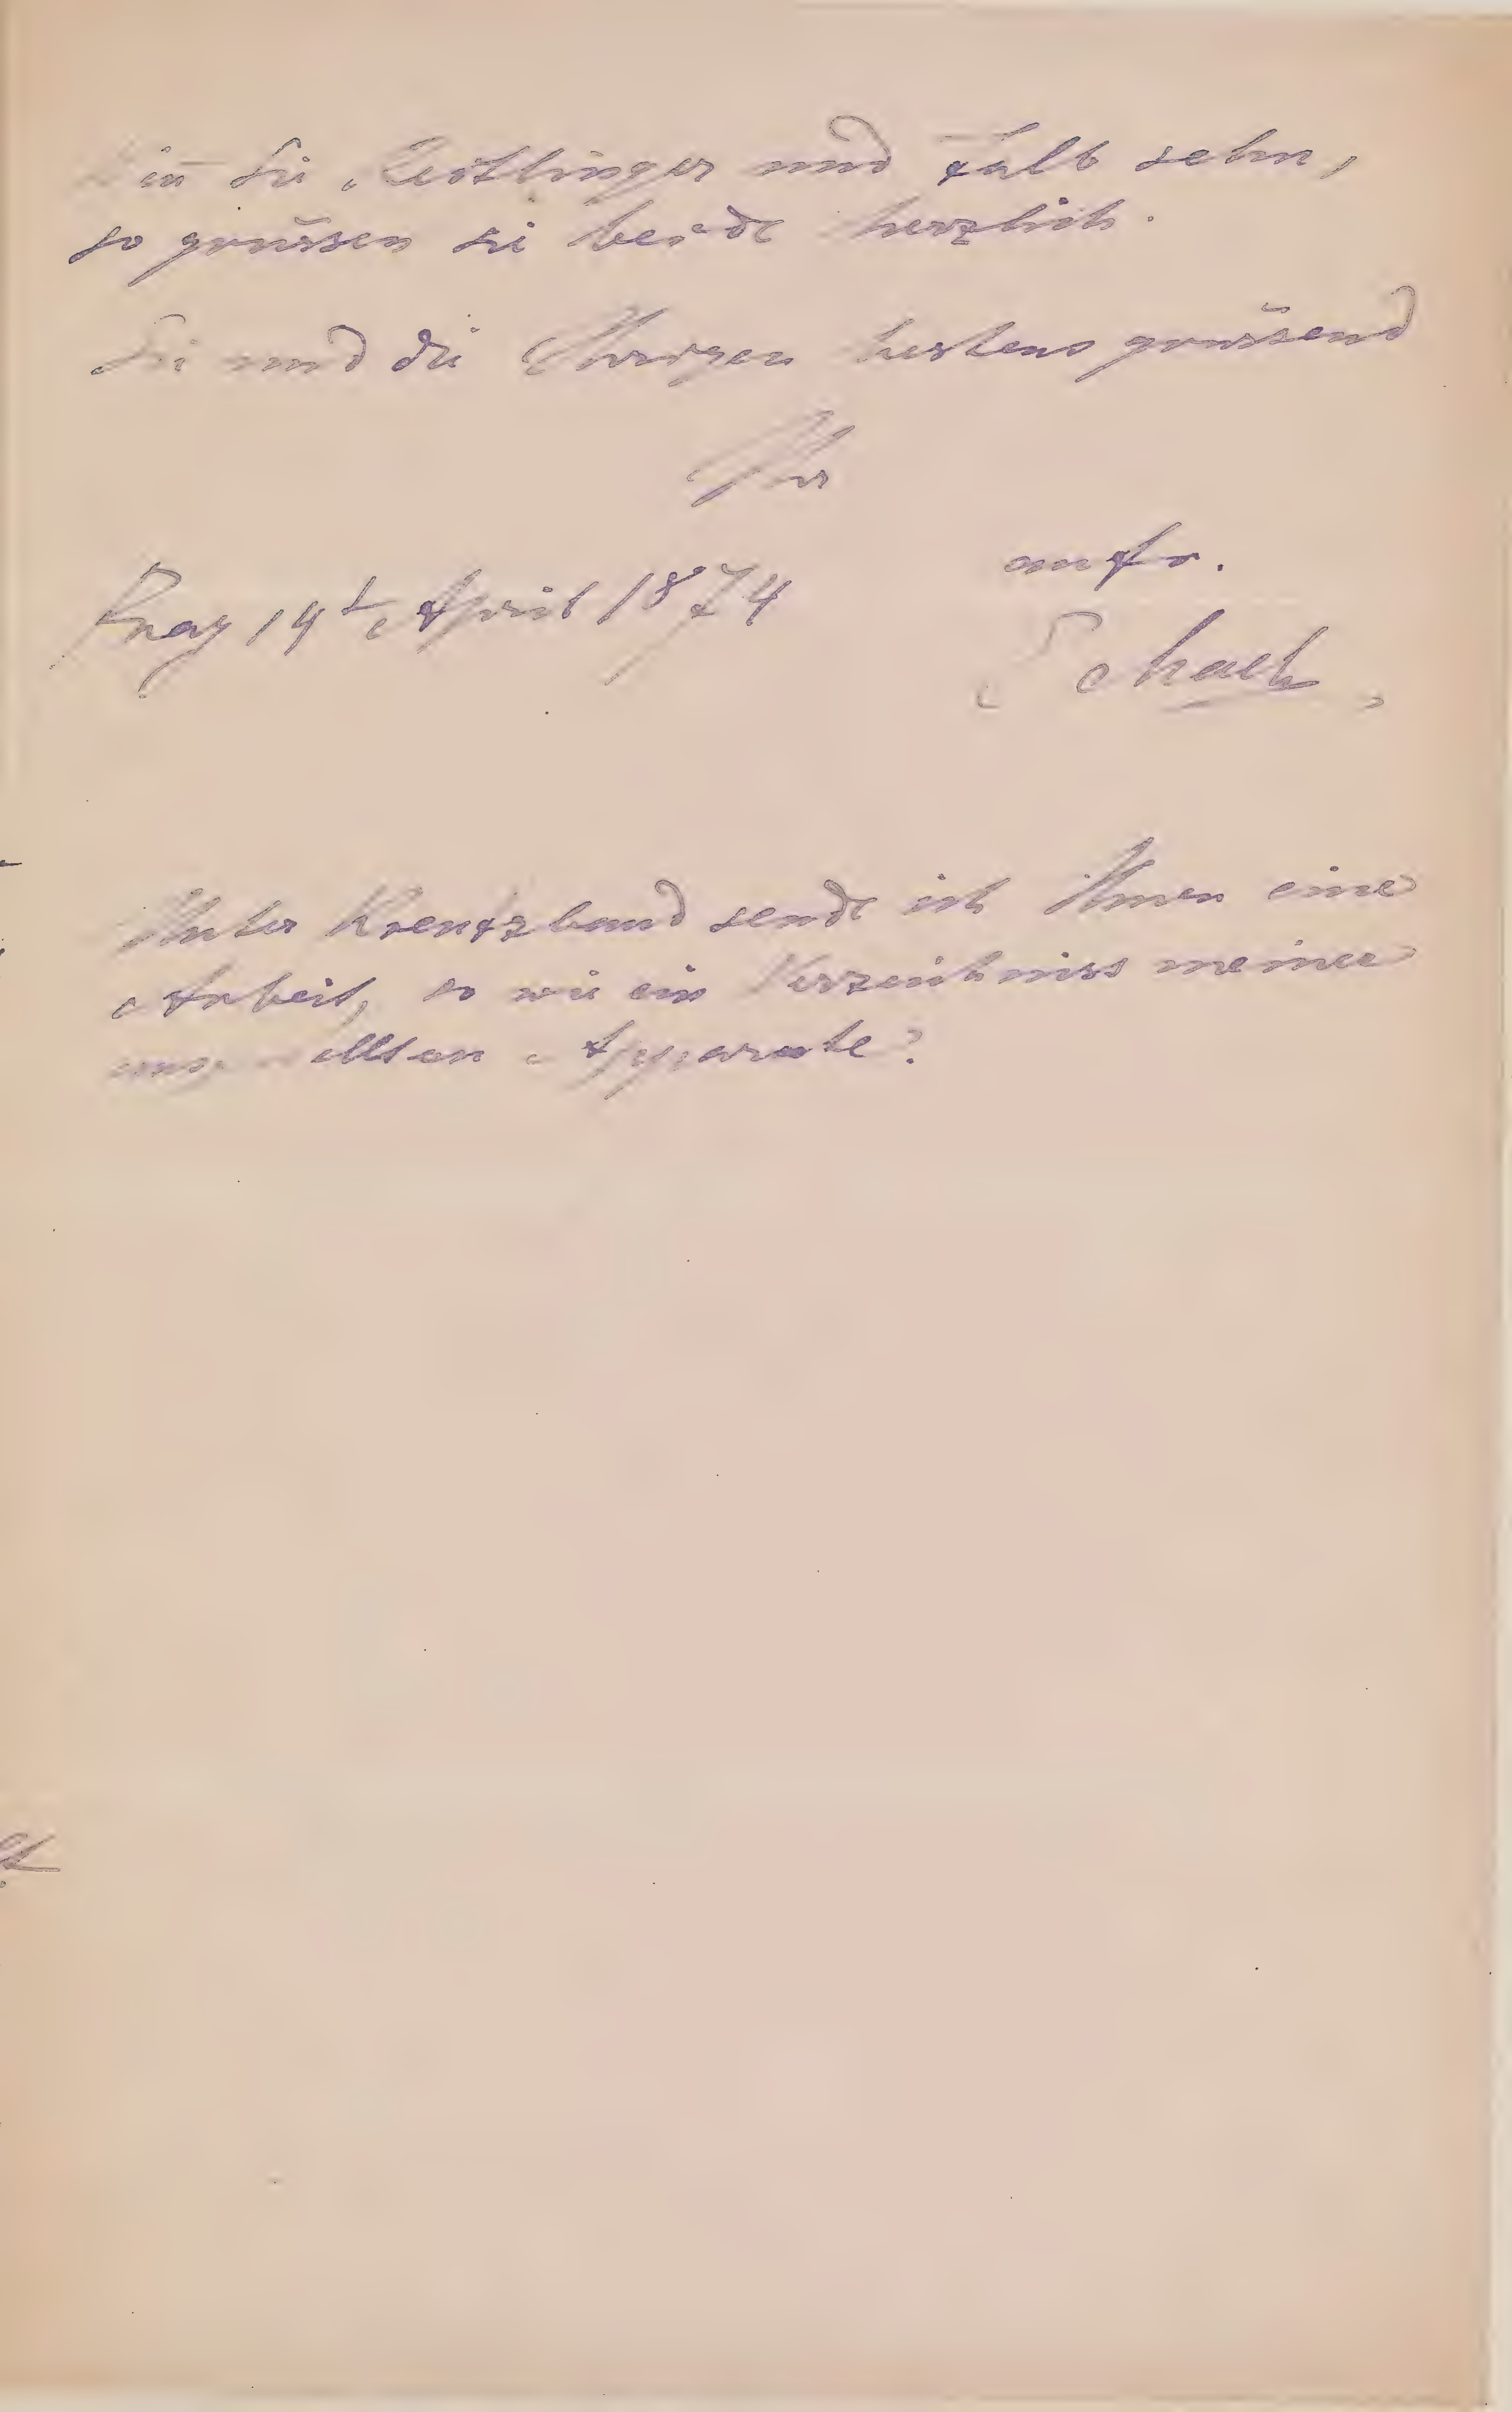 Sie Reitlinger und Kulb sehn,
so grüssen sie beide herzlich.
Sie und die Ihrigen bestens grüssend
Ihr
aufr.
Prag 14t April 1874
EMach
Unter Kreuzband sende ich Ihnen eine
Arbeit, so wie ein Verzeichniss meiner
Apparate?